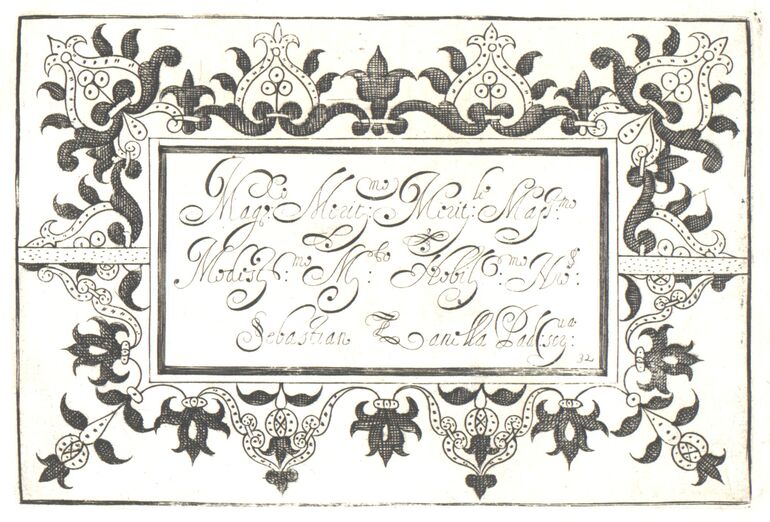 Mag:co Merit:mo Merit:le Map:mo
Modest:mo M:to Nobil:mo No:s
Sebastian Zanella Pad:ua scq:
32